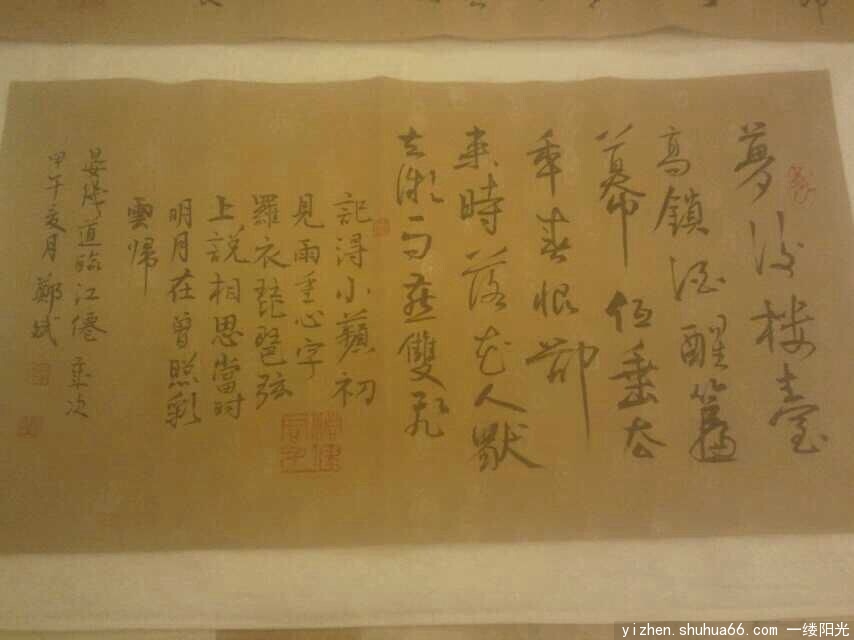 夢後楼臺
高鎖酒醒簾
幕低垂去
年春恨卻
来時落花人獨
立微雨燕雙飛
記得小蘋初
見兩重心字
羅衣琵琶弦
上說相思當时
明月在曾照彩
雲歸
晏幾道臨江僊 歲次
甲午夏月 鄭斌
yizhen.shuhua66.com 一缕阳光